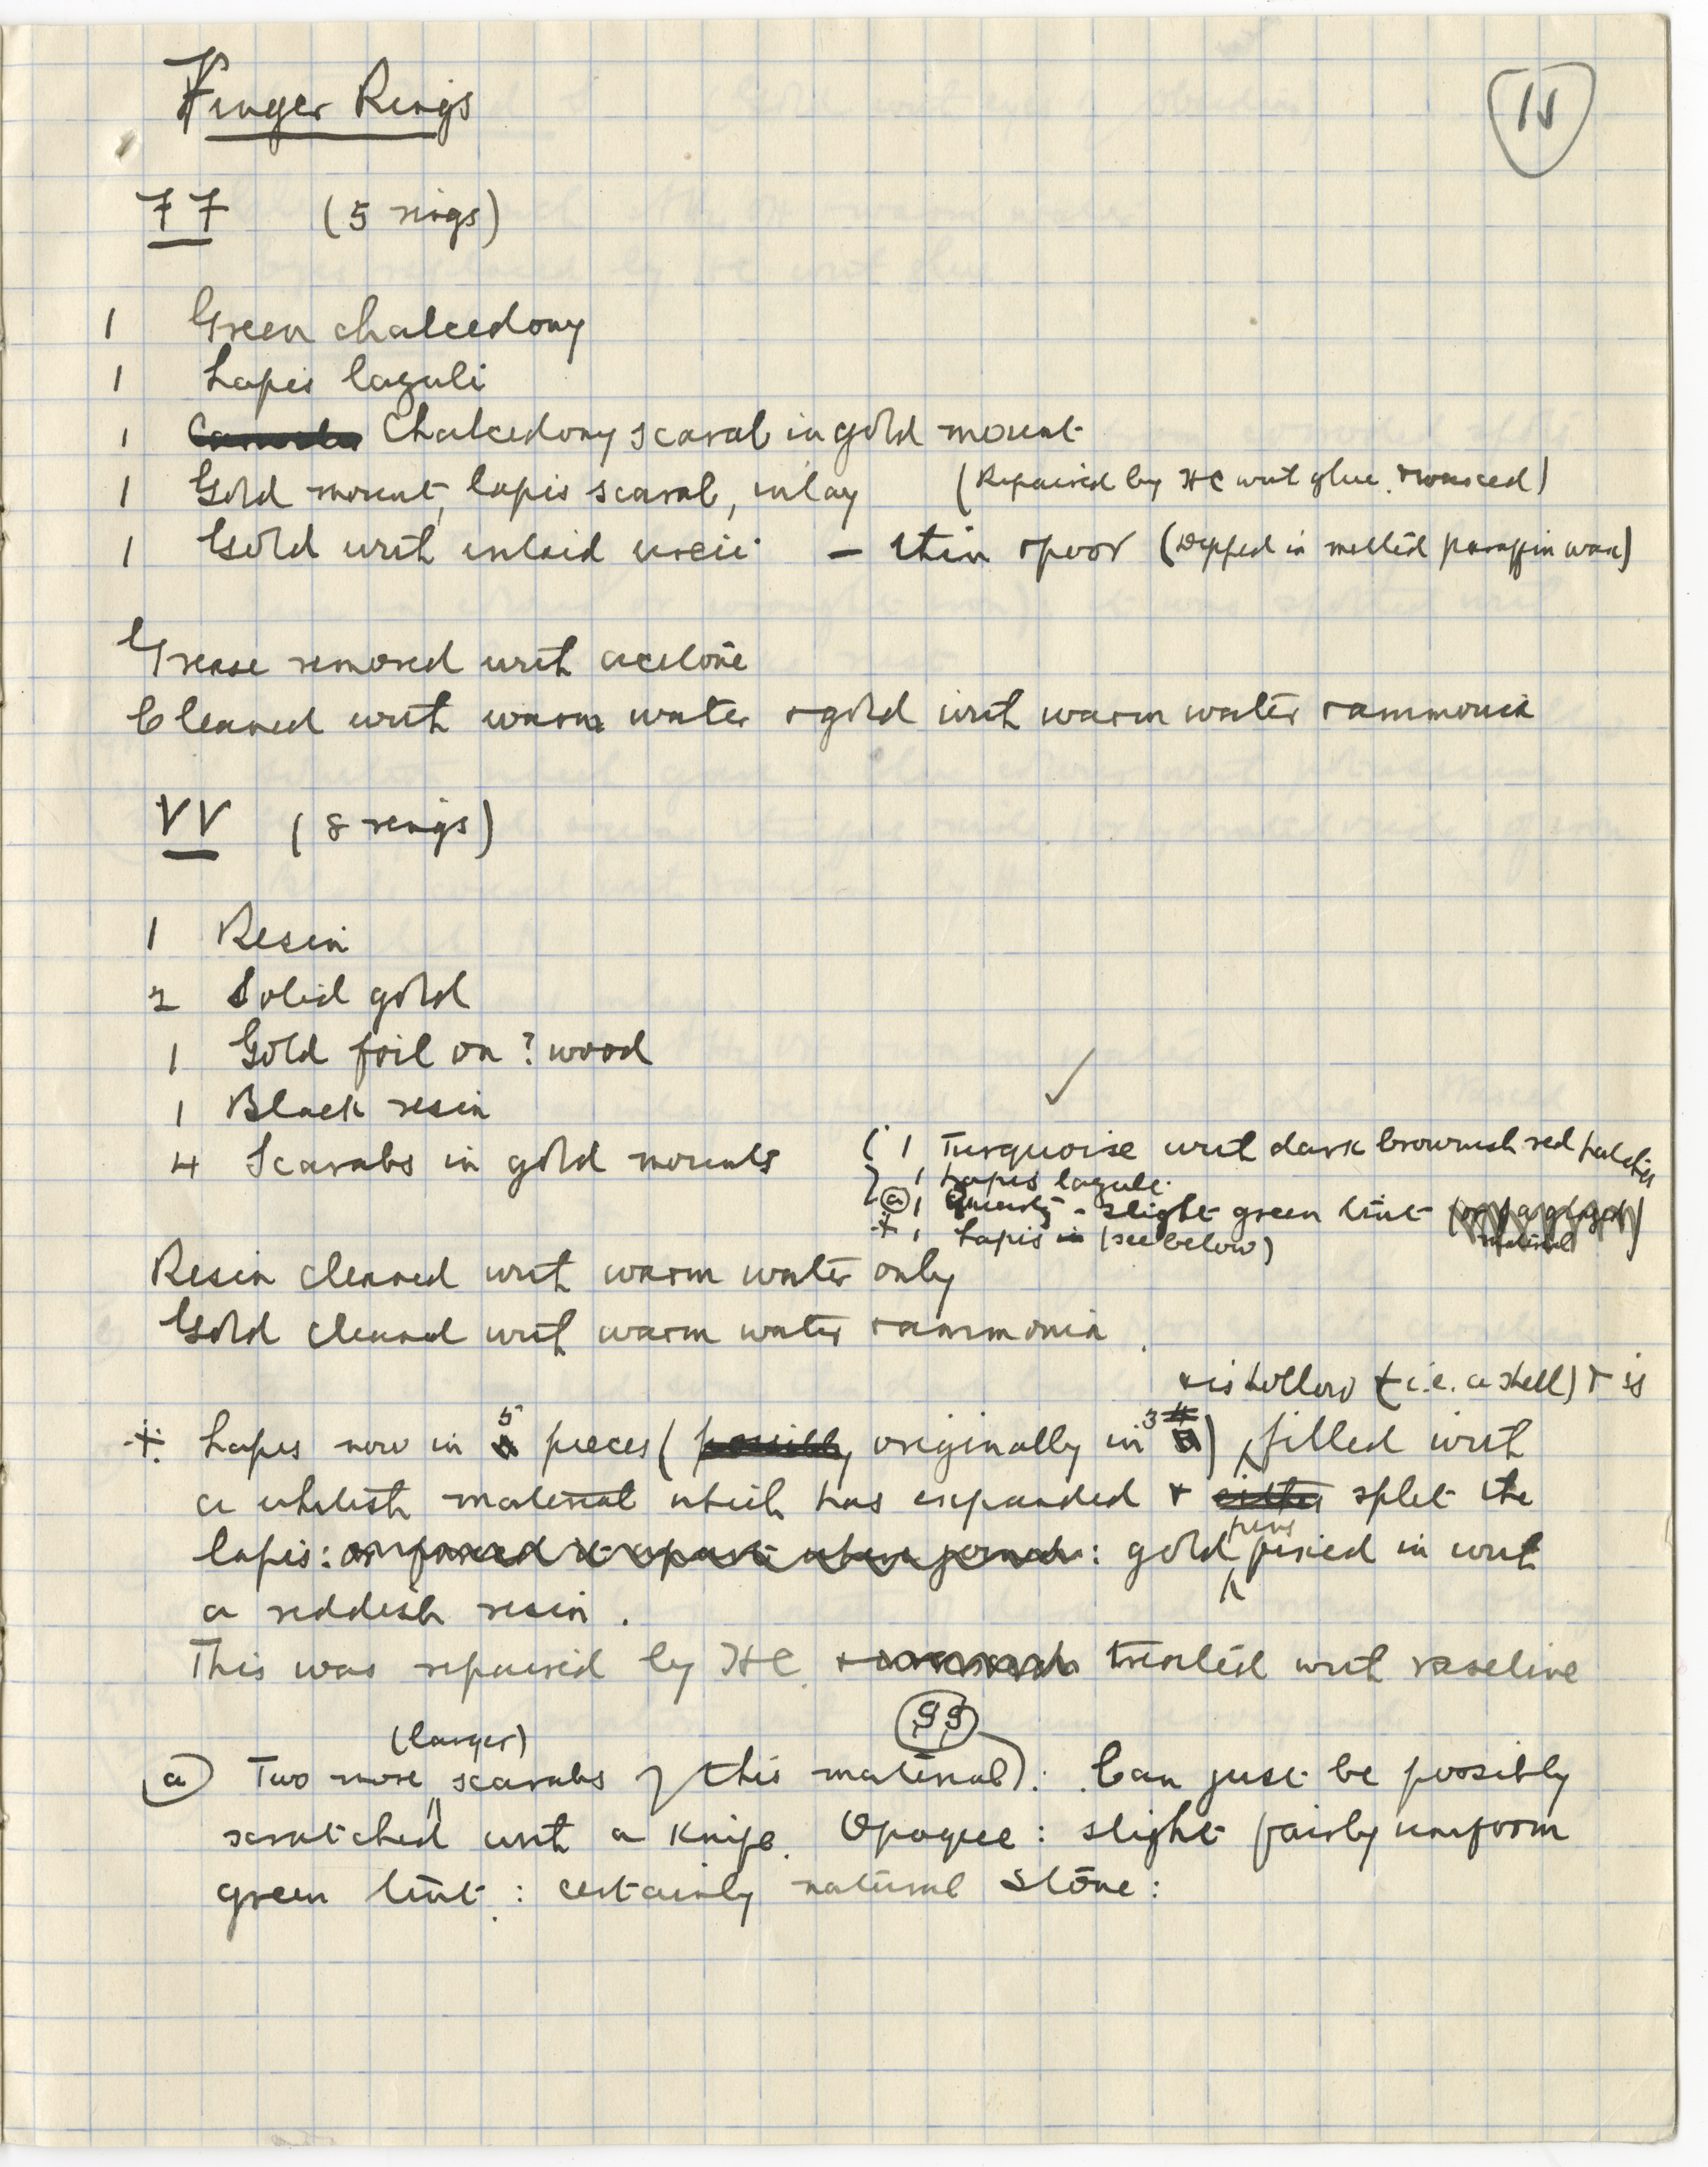 Finger Rings
15
FF (5 rings)
1 Green chalcedony
1 Lapis lazuli
1 Chalcedony scarab in gold mount
1 Gold mount, lapis scarab, inlay (Repaired by HC with glue & waxed)
1 Gold with inlaid uraei - thin & poor (Dipped in melted paraffin wax)
Grease removed with acetone
Cleaned with warm water & gold with warm water & ammonia
VV (8 rings)
1 Resin
2 Solid gold
1 Gold foil on ? wood
1 Black resin
4 Scarabs in gold mounts
1 Turquoise with dark brownish red patches
1 Lapis lazuli
(a) 1 Quartz - slight green tint (or a glazed material)
1 Lapis in (see below)
Resin cleaned with warm water only
Gold cleaned with warm water & ammonia.
& is hollow (i.e. a shell) & is
Lapis now in 5 pieces (possibly originally in 3) filled with
a whitish material which has expanded & either split the
lapis: or forced it apart when joined: gold pins fixed in with
a reddish resin.
This was repaired by HC. & treated with vaseline
(larger) SS
(a) Two more scarabs of this material): Can just be possibly
scratched with a knife. Opaque: slight fairly uniform
green tint: certainly natural stone: